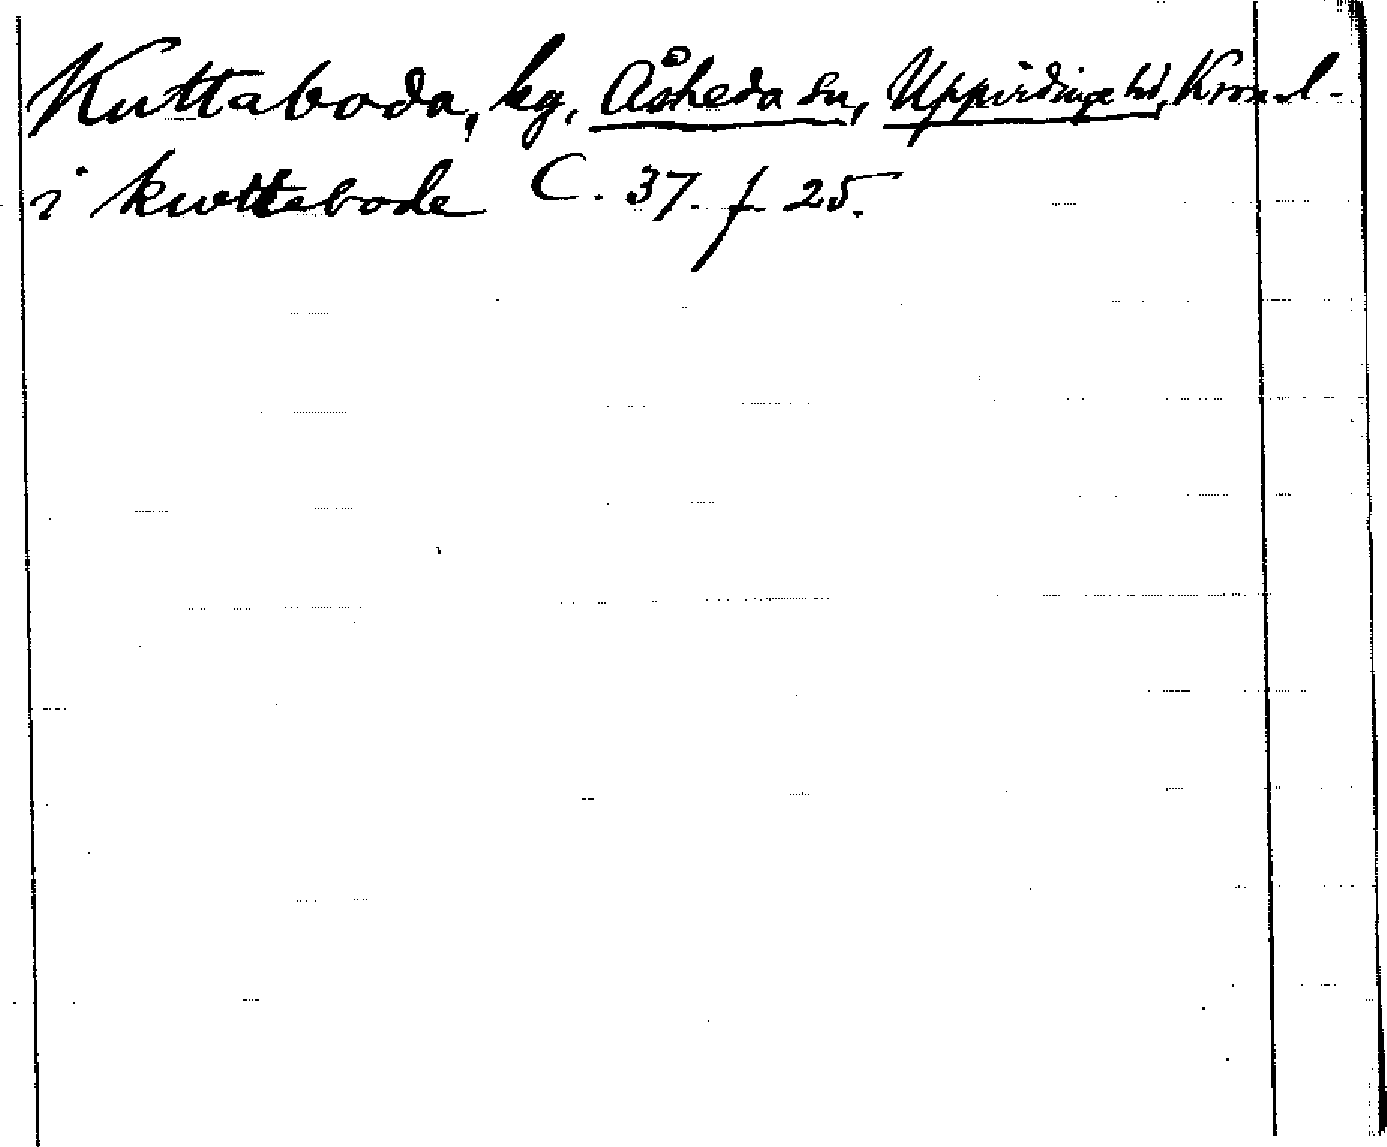 Kuttaboda, hg, Åsheda sn, Uppvidinge hd, Kron. l -
i kwttebode C. 37. f 25.